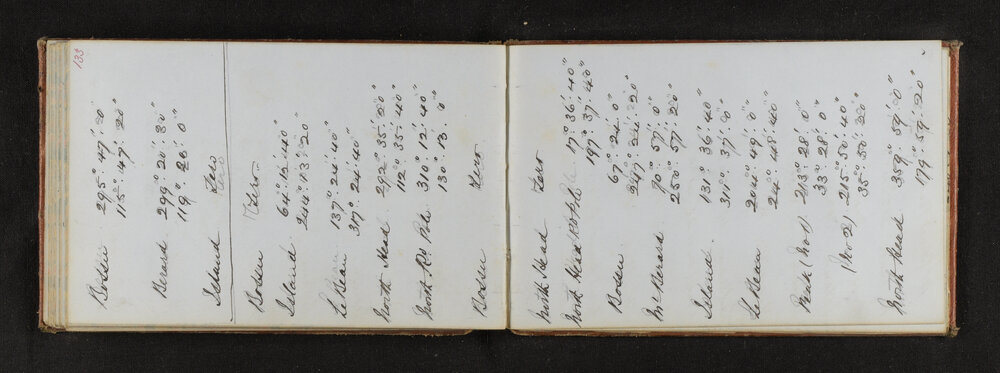 133
Bosun 295° 47' 20"
115° 47' 20"
Berard 299° 20' 30"
119° 20' 0"
Island Zero
Bosun Zero
Island 64° 13' 40"
244° 13' 20"
LeBeau 137° 24' 40"
317° 24' 40"
North Head 292° 35' 20"
112° 35' 40"
North Rk Pole 310° 12' 40"
130° 13' 0"
Bosun Zero
North Head Zero
North Head 17° 36' 40"
197° 37' 40"
Bosun 67° 24' 0"
247° 24' 20"
Mt Berard 70° 57' 0"
250° 57' 20"
Island 131° 36' 40"
311° 37' 0"
LeBeau 204° 49' 0"
24° 48' 40"
Peak (No 1) 213° 28' 0"
33° 28' 0"
(No 2) 215° 50' 40"
35° 50' 20"
North Head 359° 59' 20"
179° 59' 20"